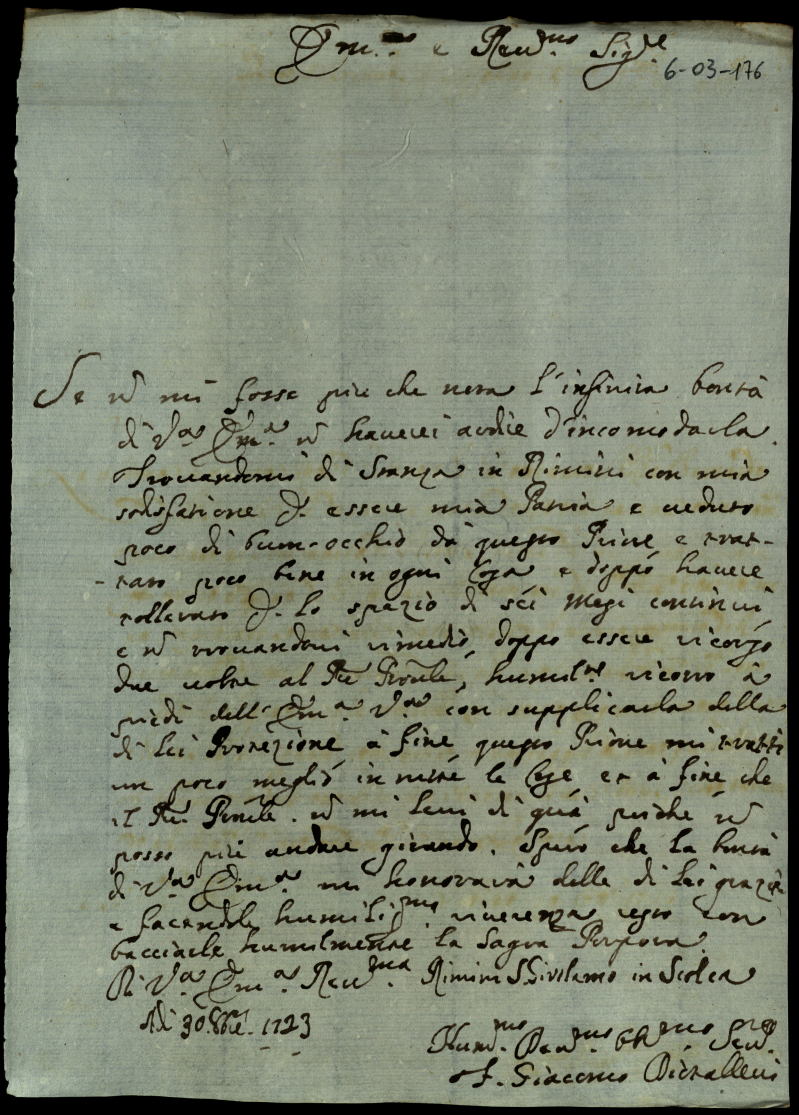 Em.mo e Rev.mo Sig.re
6-03-176
Se nō mi fosse più che nota l'infinita bontà
di V.a Em.a nō haverei ardire d'incomodarla.
Trovandomi di Stanza in Rimini con mia
sodisfatione p. essere mia Patria e veduto
poco di buon-occhio da questo Priore e trat-
-tato poco bene in ogni Cosa e doppo havere
tollerato p. lo spazio di sei Mesi continui
e nō trovandovi rimedio, doppo essere ricorso
due volte al Pre Provle, humilte ricorro à
piedi dell'Em.a V.a con supplicarla della
di Lei Protezione à fine questo Priore mi tratti
un poco meglio in tutte le Cose et à fine che
il Pre Provle. nō mi levi di quà perche nō
posso più andare girando. Spero che la bontà
di V.a Em.a mi honorarà delle di Lei grazie
e facendole humilis.mo riverenza resto con
bacciarle humilmente la Sagra Porpora.
Di V.a Em.a Rev.ma Rimini S. Girolamo in Scolca
Adi 30 8bre. 1723
Hum.mo Dev.mo Obb.mo Serv.
F. Giacomo